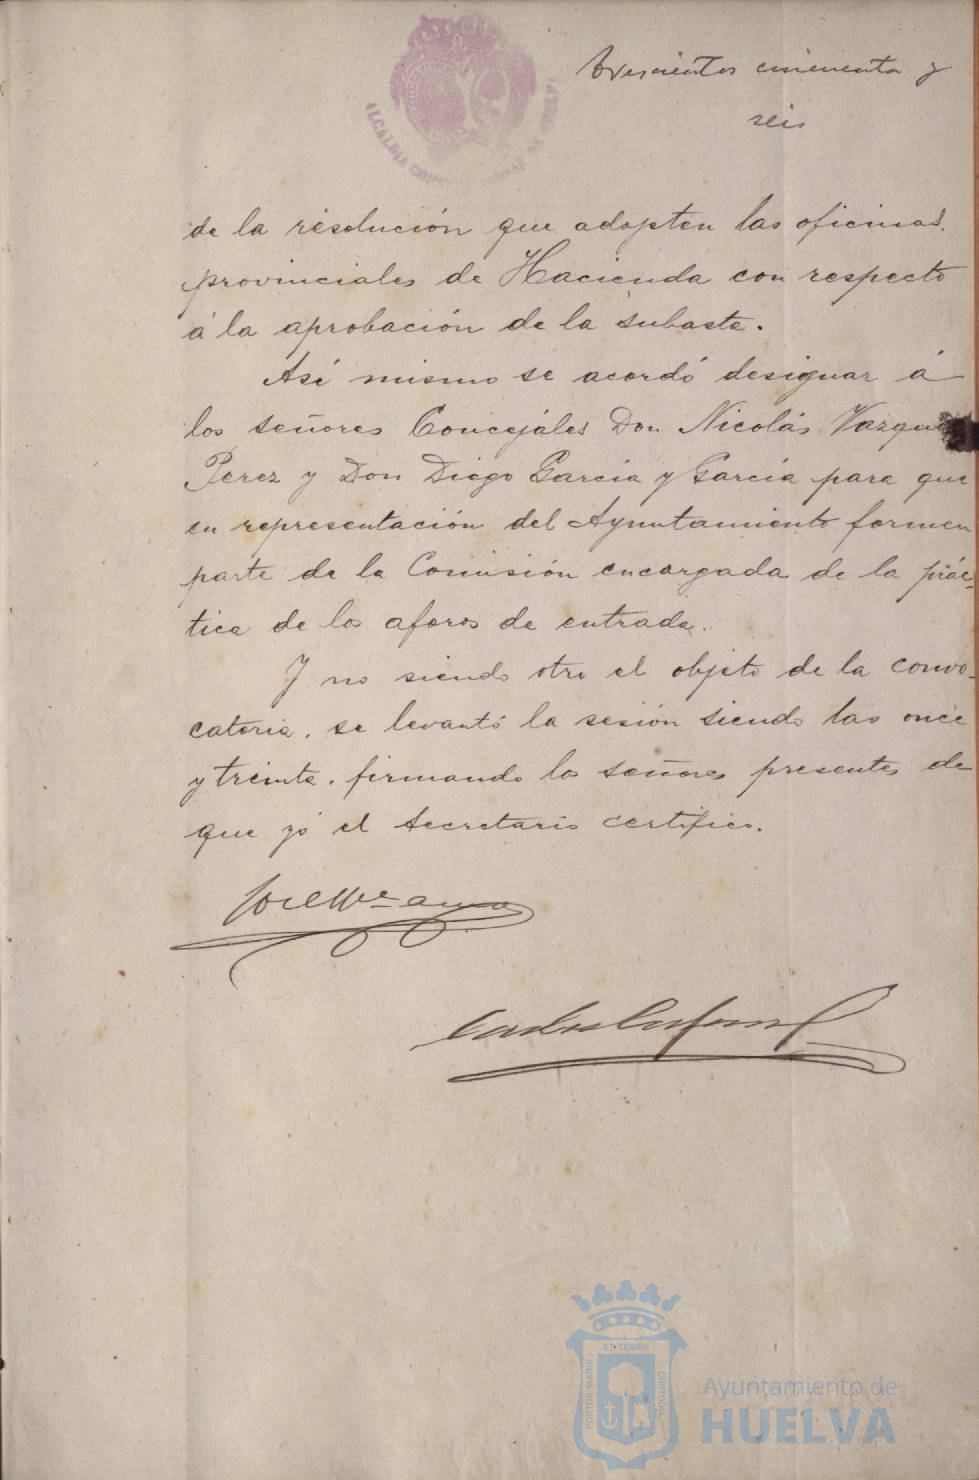 Trescientos cincuenta y
seis
ALCALDIA
de la resolución que adopten las oficinas
provinciales de Hacienda con respecto
á la aprobación de la subasta.
Así mismo se acordó designar á
los señores Concejáles Don Nicolás Vazquez
Perez y Don Diego Garcia y Garcia para que
en representación del Ayuntamiento formen
parte de la Comisión encargada de la prác-
tica de los aforos de entrada.
Y no siendo otro el objeto de la convo-
catoria, se levantó la sesión siendo las once
y treinta, firmando los señores presentes de
que yó el Secretario certifico.
PORTUS MARIS
ET TERRÆ
CUSTODIA
Ayuntamiento de
HUELVA